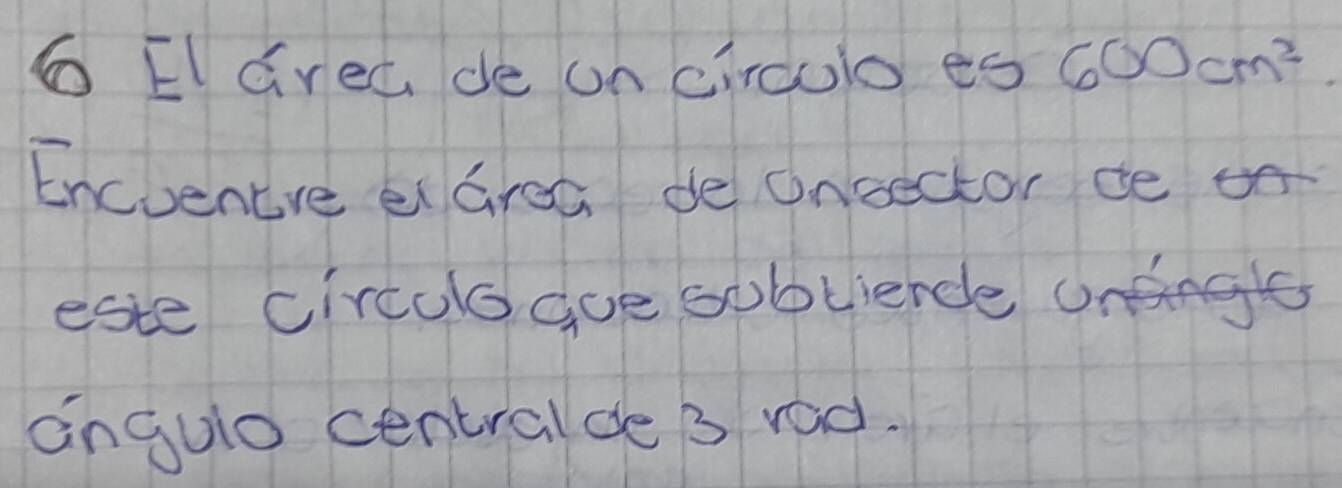 6 El área de un círculo es 600cm².
Encuentre el área de un sector de
este círculo que subtiende un
ángulo central de 3 rad.